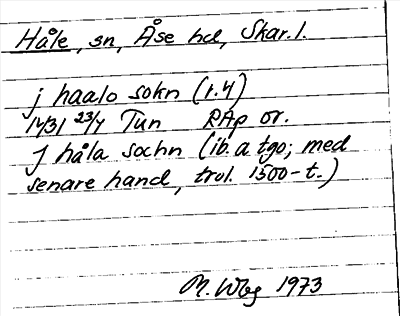 Håle, sn, Åse hd, Skar. l.
j haalo sokn (r. 4)
1431 23/4 Tun RAp or.
J håla sochn (ib. a tgo; med
senare hand, trol. 1500-t.)
M. Wbg 1973